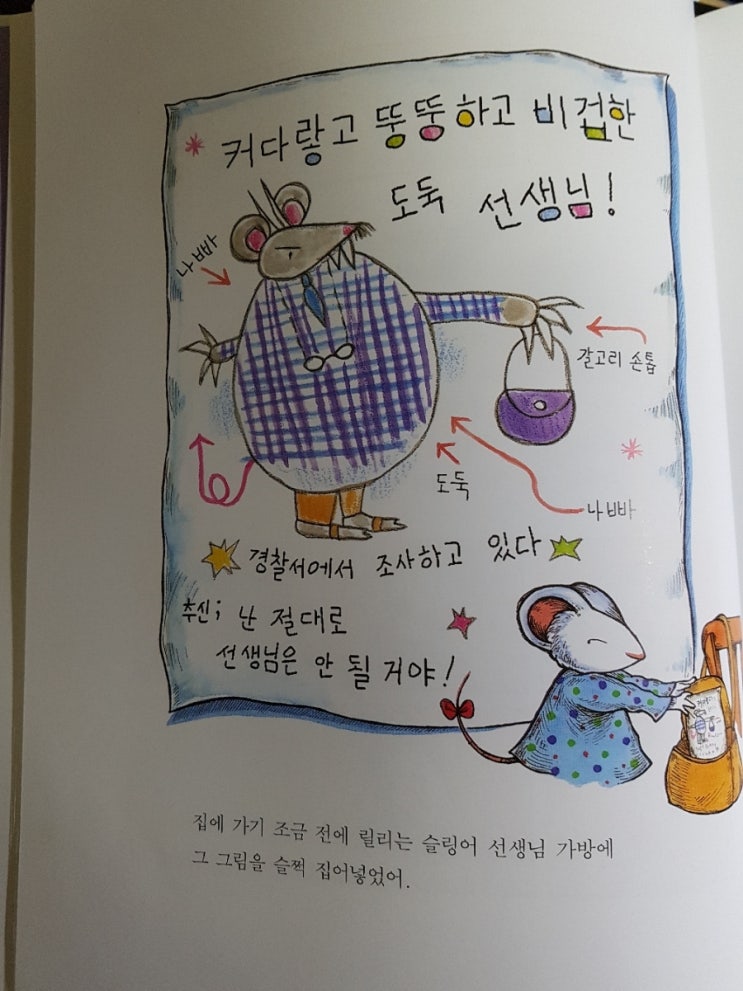 커다랗고 뚱뚱하고 비겁한
도둑 선생님!
나빠
갈고리 손톱
도둑
나빠
경찰서에서 조사하고 있다
추신; 난 절대로
선생님은 안 될 거야!
집에 가기 조금 전에 릴리는 슬링어 선생님 가방에
그 그림을 슬쩍 집어넣었어.